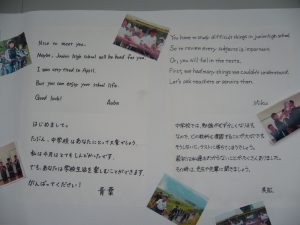 Nice to meet you.
Maybe, Junior high school will be hard for you.
I was very tired in April.
But you can enjoy your school life.
Good luck!
Aoba
はじめまして。
たぶん、中学校はあなたにとって大変でしょう。
私は4月はとてもしんどかったです。
でも、あなたは学校生活を楽しむことができます。
がんばってください！
青葉
You have to study difficult things in junior high school.
So to review every subjects is important.
Or, you will fail in the tests.
First, we had many things we couldn't understand.
Let's ask teachers or seniors then.
中学校では、勉強がむずかしくなります。
なので、どの教科も復習することが大切です。
そうしないと、テストに落ちてしまうでしょう。
最初は私達もわからないことがたくさんありました。
その時は、先生や先輩に聞きましょう。